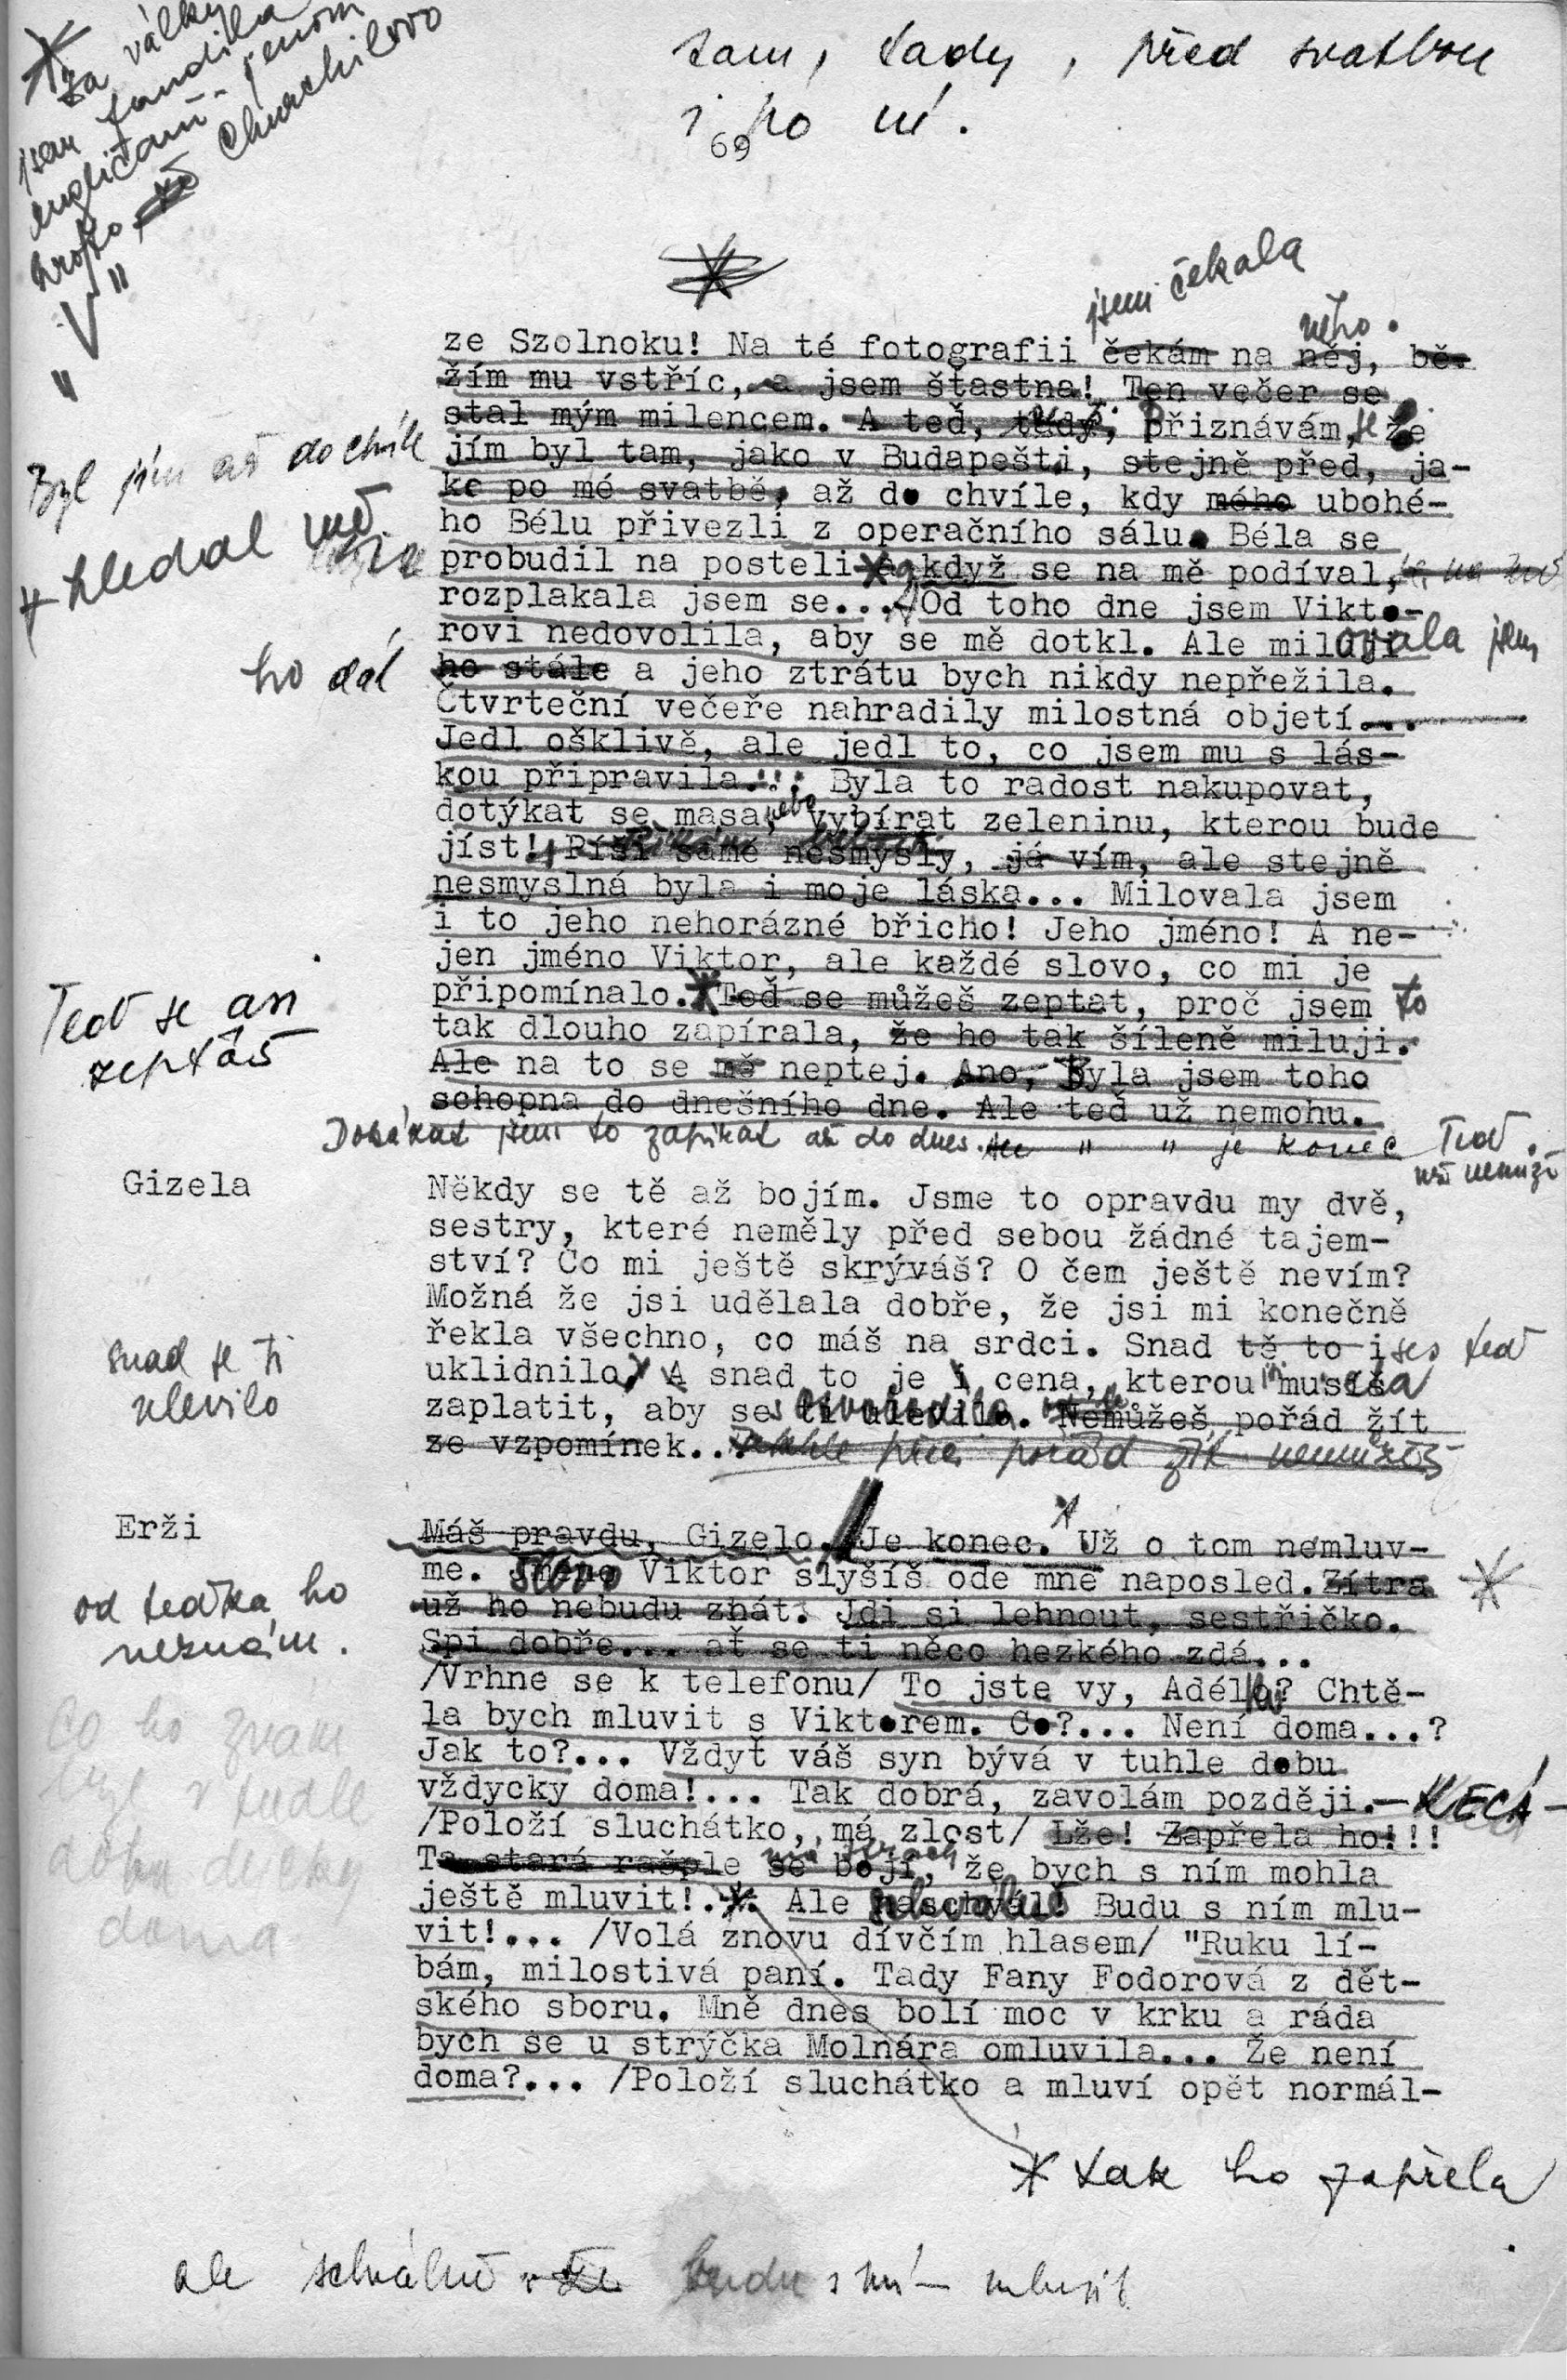 za války
jsem fandila
angličanů. jenom
kvůli Churchilovo
" V "
tam, tady, před svatbou
i po ní.
69
jsem čekala
něho.
ze Szolnoku! Na té fotografii čekám na něj, bě-
žím mu vstříc, a jsem šťastna! Ten večer se
stal mým milencem. A teď, tady, přiznávám, že
jím byl tam, jako v Budapešti, stejně před, ja-
Byl jím až do chvíle
ko po mé svatbě, až do chvíle, kdy mého ubohé-
ho Bélu přivezli z operačního sálu. Béla se
hledal mě
probudil na posteli a když se na mě podíval,
rozplakala jsem se... Od toho dne jsem Vikto-
rovi nedovolila, aby se mě dotkl. Ale miluji
ovala jsem
ho dál
ho stále a jeho ztrátu bych nikdy nepřežila.
Čtvrteční večeře nahradily milostná objetí...
Jedl ošklivě, ale jedl to, co jsem mu s lás-
kou připravila... Byla to radost nakupovat,
dotýkat se masa, nebo vybírat zeleninu, kterou bude
jíst! Píši samé nesmysly, já vím, ale stejně
nesmyslná byla i moje láska... Milovala jsem
i to jeho nehorázné břicho! Jeho jméno! A ne-
jen jméno Viktor, ale každé slovo, co mi je
Teď se asi
zeptáš
připomínalo. Teď se můžeš zeptat, proč jsem to
tak dlouho zapírala, že ho tak šíleně miluji.
Ale na to se mě neptej. Ano, Byla jsem toho
schopna do dnešního dne. Ale teď už nemohu.
Dokázat jsem to zapírat až do dnes. " " je konec Teď
už nemůžu
Gizela
Někdy se tě až bojím. Jsme to opravdu my dvě,
sestry, které neměly před sebou žádné tajem-
ství? Co mi ještě skrýváš? O čem ještě nevím?
Možná že jsi udělala dobře, že jsi mi konečně
řekla všechno, co máš na srdci. Snad tě to i ses teď
snad se ti
ulevilo
uklidnilo, A snad to je i cena, kterou musíš
zaplatit, aby se ti ulevilo. Nemůžeš pořád žít
ze vzpomínek... pořád žít nemůžeš
Erži
Máš pravdu, Gizelo. Je konec. Už o tom nemluv-
me. Jméno slovo Viktor slyšíš ode mne naposled. Zítra
od teďka ho
neznám.
už ho nebudu znát. Jdi si lehnout, sestřičko.
Spi dobře... ať se ti něco hezkého zdá...
/Vrhne se k telefonu/ To jste vy, Adélko? Chtě-
la bych mluvit s Viktorem. Co?... Není doma...?
Co ho znám
byl v tudle
dobu dycky
doma
Jak to?... Vždyť váš syn bývá v tuhle dobu
vždycky doma!... Tak dobrá, zavolám později. — KECÁ —
/Položí sluchátko, má zlost/ Lže! Zapřela ho!!!
má strach
Ta stará rašple se bojí, že bych s ním mohla
ještě mluvit!... Ale naschvál! Budu s ním mlu-
vit!... /Volá znovu dívčím hlasem/ "Ruku lí-
bám, milostivá paní. Tady Fany Fodorová z dět-
ského sboru. Mně dnes bolí moc v krku a ráda
bych se u strýčka Molnára omluvila... Že není
doma?... /Položí sluchátko a mluví opět normál-
tak ho zapřela
ale schválně že budu s ním mluvit